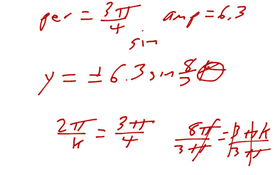 per = 3π/4 amp = 6.3
sin
y = ± 6.3 sin 8/3
2π/k = 3π/4 8π/3π =